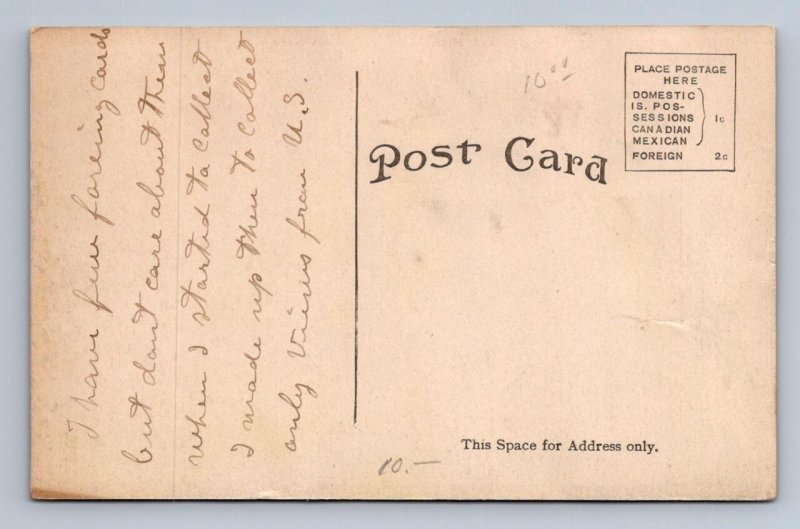 I have few foreing cards
but don't care about them
when I started to collect
I made up then to collect
only Views from U.S.
10.00
10.—
Post Card
PLACE POSTAGE
HERE
DOMESTIC
IS. POS-
SESSIONS
CANADIAN
MEXICAN
1c
FOREIGN 2c
This Space for Address only.